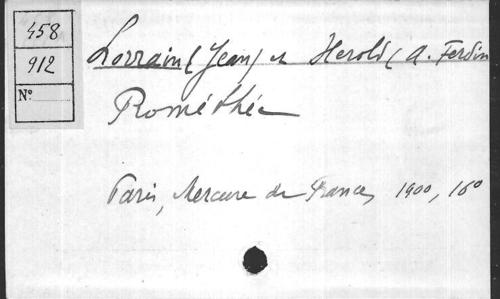 458
912
N:°
Lorrain (Jean) et Herold (A. Ferdin
Prométhée
Paris, Mercure de France, 1900, 16°